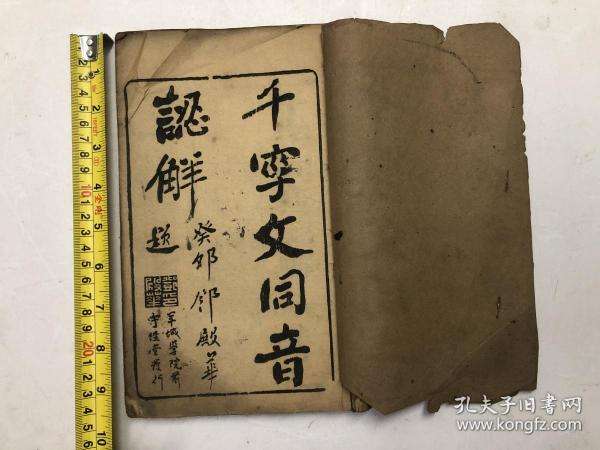 千字文同音
認解
癸卯鄧殿華
題
鄧印
殿華
羊城學院前
守經堂發行
孔夫子旧书网
www.kongfz.com